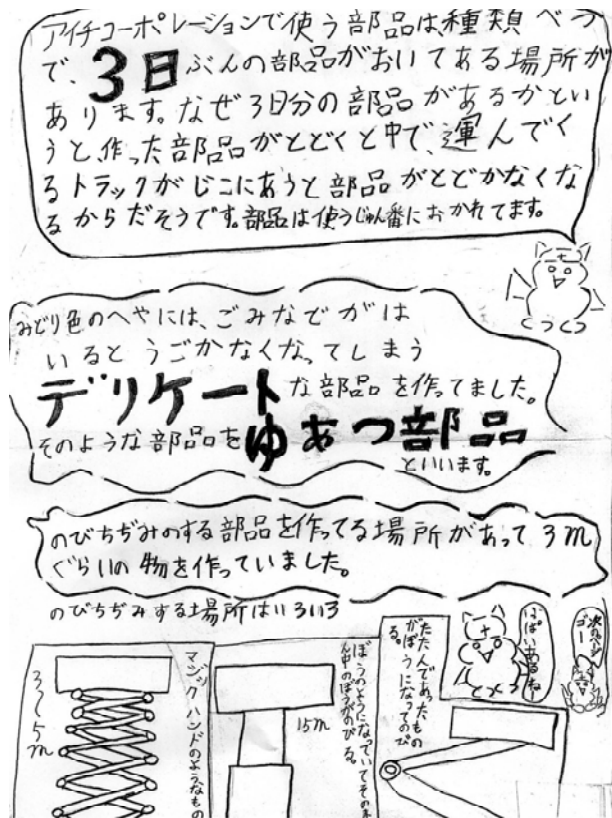 アイチコーポレーションで使う部品は種類べつ
で、3日ぶんの部品がおいてある場所が
あります。なぜ3日分の部品があるかとい
うと、作った部品がとどくと中で、運んでく
るトラックがじこにあうと部品がとどかなくな
るからだそうです。部品は使うじゅん番におかれてます。
みどり色のへやには、ごみなでがは
いるとうごかなくなってしまう
デリケートな部品を作ってました。
そのような部品をゆあつ部品
といいます。
のびちぢみのする部品を作ってる場所があって3m
ぐらいの物を作っていました。
のびちぢみする場所はいろいろ
3〜5m
マジックハンドのようなもの
15m
ぼうのようになっていてその
ん中のぼうがのびる。
たたんであったもの
がぼうになってのび
る。